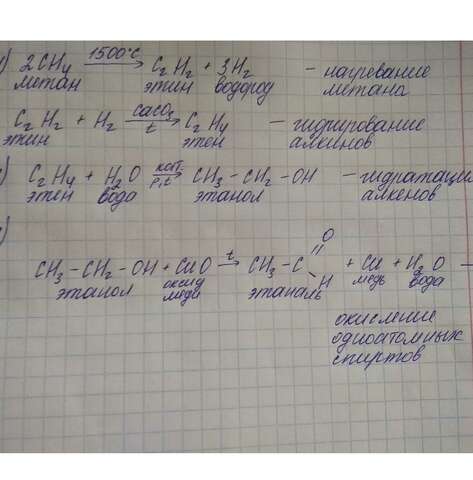 ) 2CH₄ 1500°C → C₂H₂ + 3H₂ - нагревание
метан этин водород метана
C₂H₂ + H₂ CaCO₃ t → C₂H₄ - гидрирование
этин этен алкинов
) C₂H₄ + H₂O кат. p,t → CH₃ - CH₂ - OH - гидратаци
этен вода этанол алкенов
)
O
CH₃ - CH₂ - OH + CuO t → CH₃ - C H + Cu + H₂O -
этанол оксид меди этаналь медь вода
окисление
одноатомных
спиртов